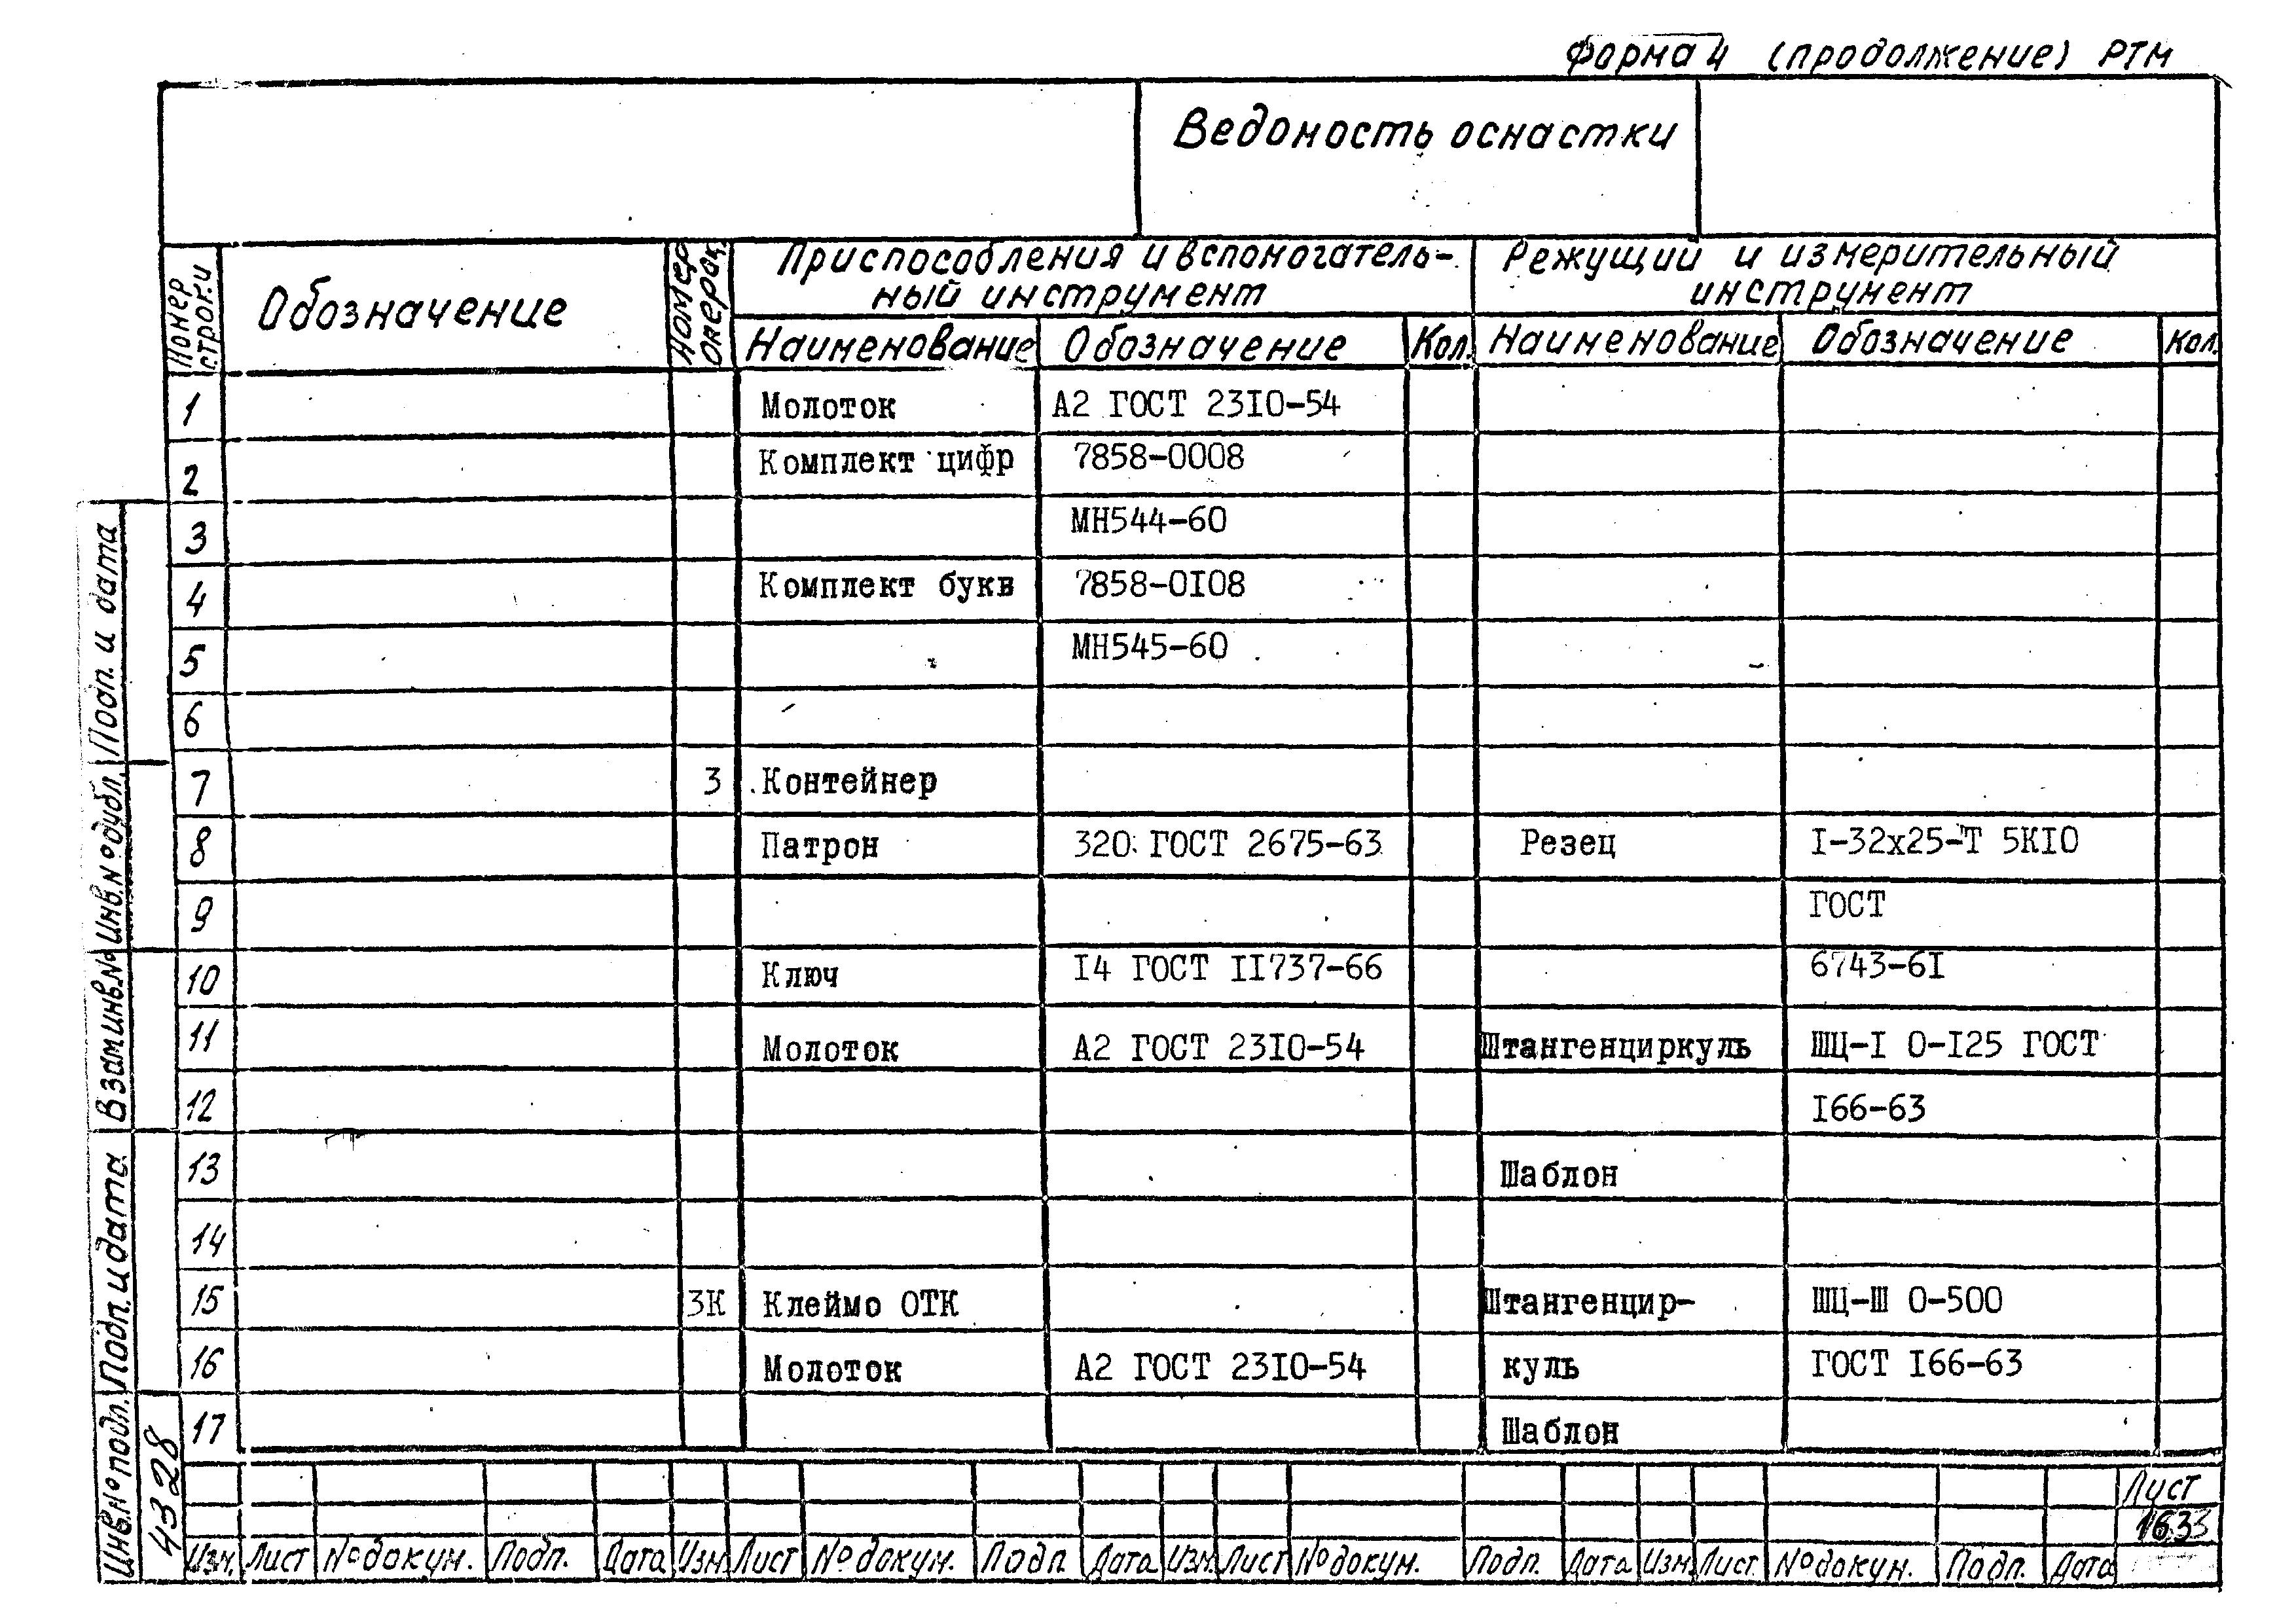 Форма 4 (продолжение) РТМ
Ведомость оснастки
Номер строки
Обозначение
Номер операц.
Приспособления и вспомогатель-
ный инструмент
Режущий и измерительный
инструмент
Наименование Обозначение Кол. Наименование Обозначение Кол.
1 Молоток А2 ГОСТ 23I0-54
2 Комплект цифр 7858-0008
3 МН544-60
4 Комплект букв 7858-0I08
5 МН545-60
6
7 3 Контейнер
8 Патрон 320 ГОСТ 2675-63 Резец I-32х25-Т 5КI0
9 ГОСТ
10 Ключ I4 ГОСТ II737-66 6743-6I
11 Молоток А2 ГОСТ 23I0-54 Штангенциркуль ШЦ-I 0-I25 ГОСТ
12 I66-63
13 Шаблон
14
15 3К Клеймо ОТК Штангенцир- ШЦ-Ш 0-500
16 Молоток А2 ГОСТ 23I0-54 куль ГОСТ I66-63
17 Шаблон
Лист
Изм. Лист №докум. Подп. Дата Изм. Лист №докум. Подп. Дата Изм. Лист №докум. Подп. Дата Изм. Лист №докум. Подп. Дата
Подп. и дата
Инв.№дубл.
Взам.инв.№
Подп. и дата
Инв.№подл.
4328